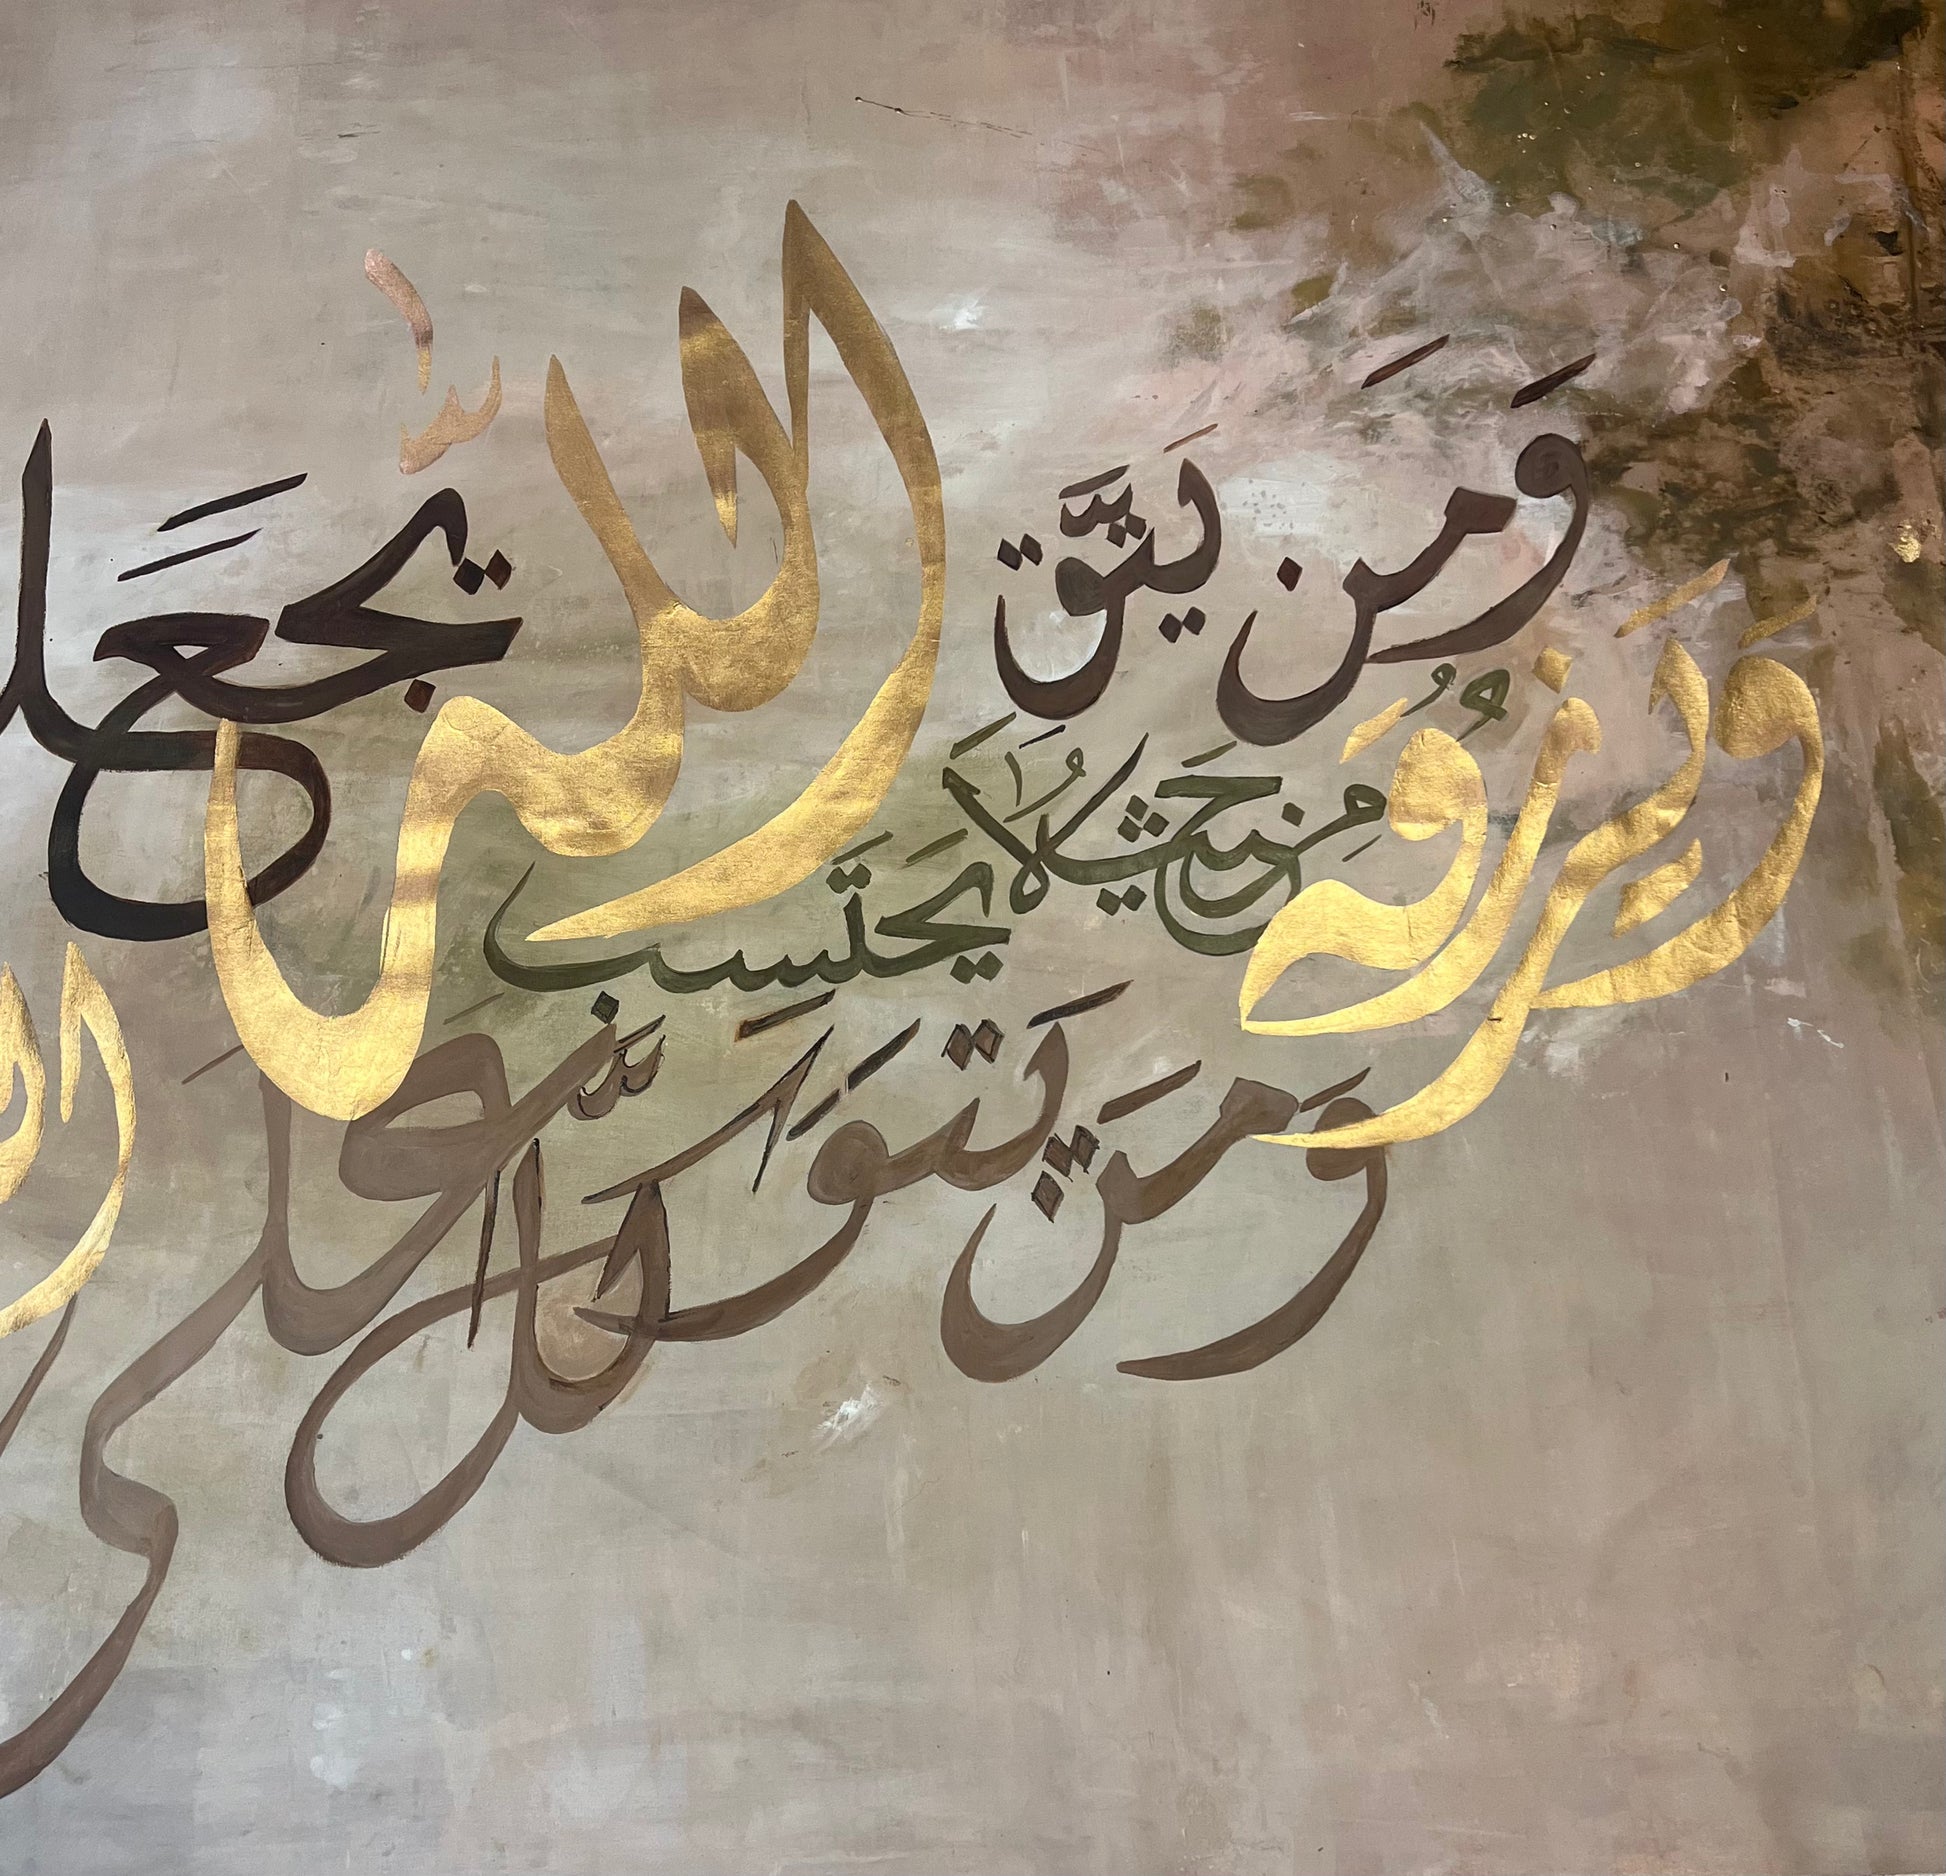 وَمَن يَتَّقِ اللّٰه يَجْعَل
وَيَرْزُقهُ مِن حَيْثُ لَا يَحْتَسِب
وَمَن يَتَوَكَّل عَلَى